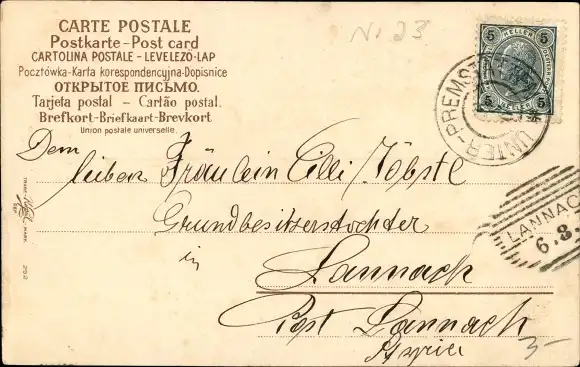 CARTE POSTALE
Postkarte - Post card
CARTOLINA POSTALE - LEVELEZŐ-LAP
Pocztówka-Karta korespondencyjna-Dopisnice
ОТКРЫТОЕ ПИСЬМО.
Tarjeta postal - Cartão postal.
Brefkort-Briefkaart-Brevkort
Union postale universelle.
N. 23
5 HELLER 5
5 5
UNTER-PREMST
Dem
lieben Fräulein Cilli Töbstl
Grundbesitzerstochter
in
Lannach
Post Lannach
Styria
LANNAC
6.8.
3-
TRADE
MARK.
292